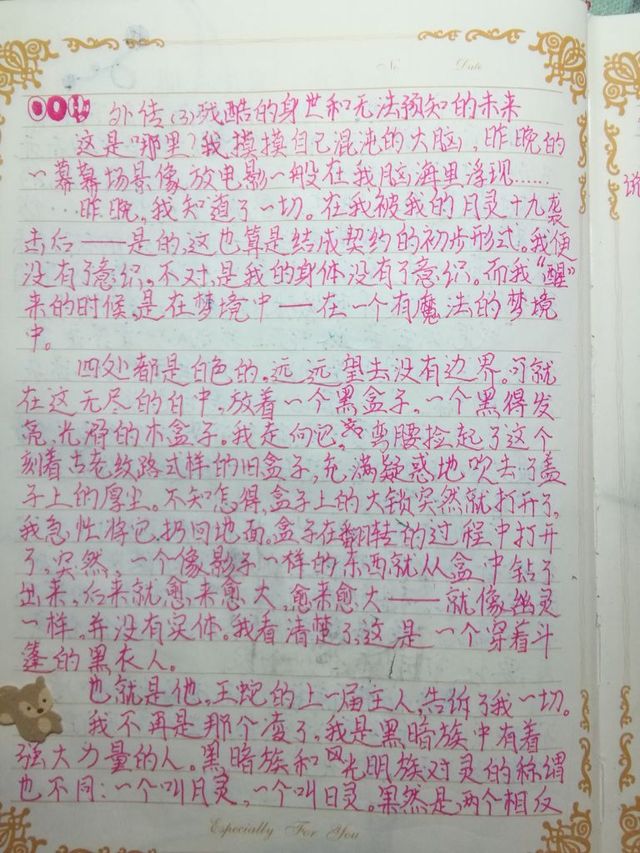 No Date
外传(3)残酷的身世和无法预知的未来
这是哪里?我摸摸自己混沌的大脑,昨晚的
一幕幕场景像放电影一般在我脑海里浮现……
昨晚,我知道了一切。在我被我的月灵十九袭
击后——是的,这也算是结成契约的初步形式。我便
没有了意识。不对,是我的身体没有了意识。而我“醒”
来的时候,是在梦境中——在一个有魔法的梦境
中。
四处都是白色的,远远望去没有边界。可就
在这无尽的白中,放着一个黑盒子,一个黑得发
亮,光滑的木盒子。我走向它,弯腰捡起了这个
刻着古老纹路式样的旧盒子,充满疑惑地吹去了盖
子上的厚尘。不知怎得,盒子上的大锁突然就打开了,
我急性将它扔回地面。盒子在翻转的过程中打开
了,突然,一个像影子一样的东西就从盒中钻了
出来,后来就愈来愈大,愈来愈大——就像幽灵
一样,并没有实体。我看清楚了,这是一个穿着斗
篷的黑衣人。
也就是他,王蛇的上一届主人,告诉了我一切。
我不再是那个渣了,我是黑暗族中有着
强大力量的人。黑暗族和光明族对灵的称谓
也不同:一个叫月灵,一个叫日灵。果然是两个相反
Especially For You